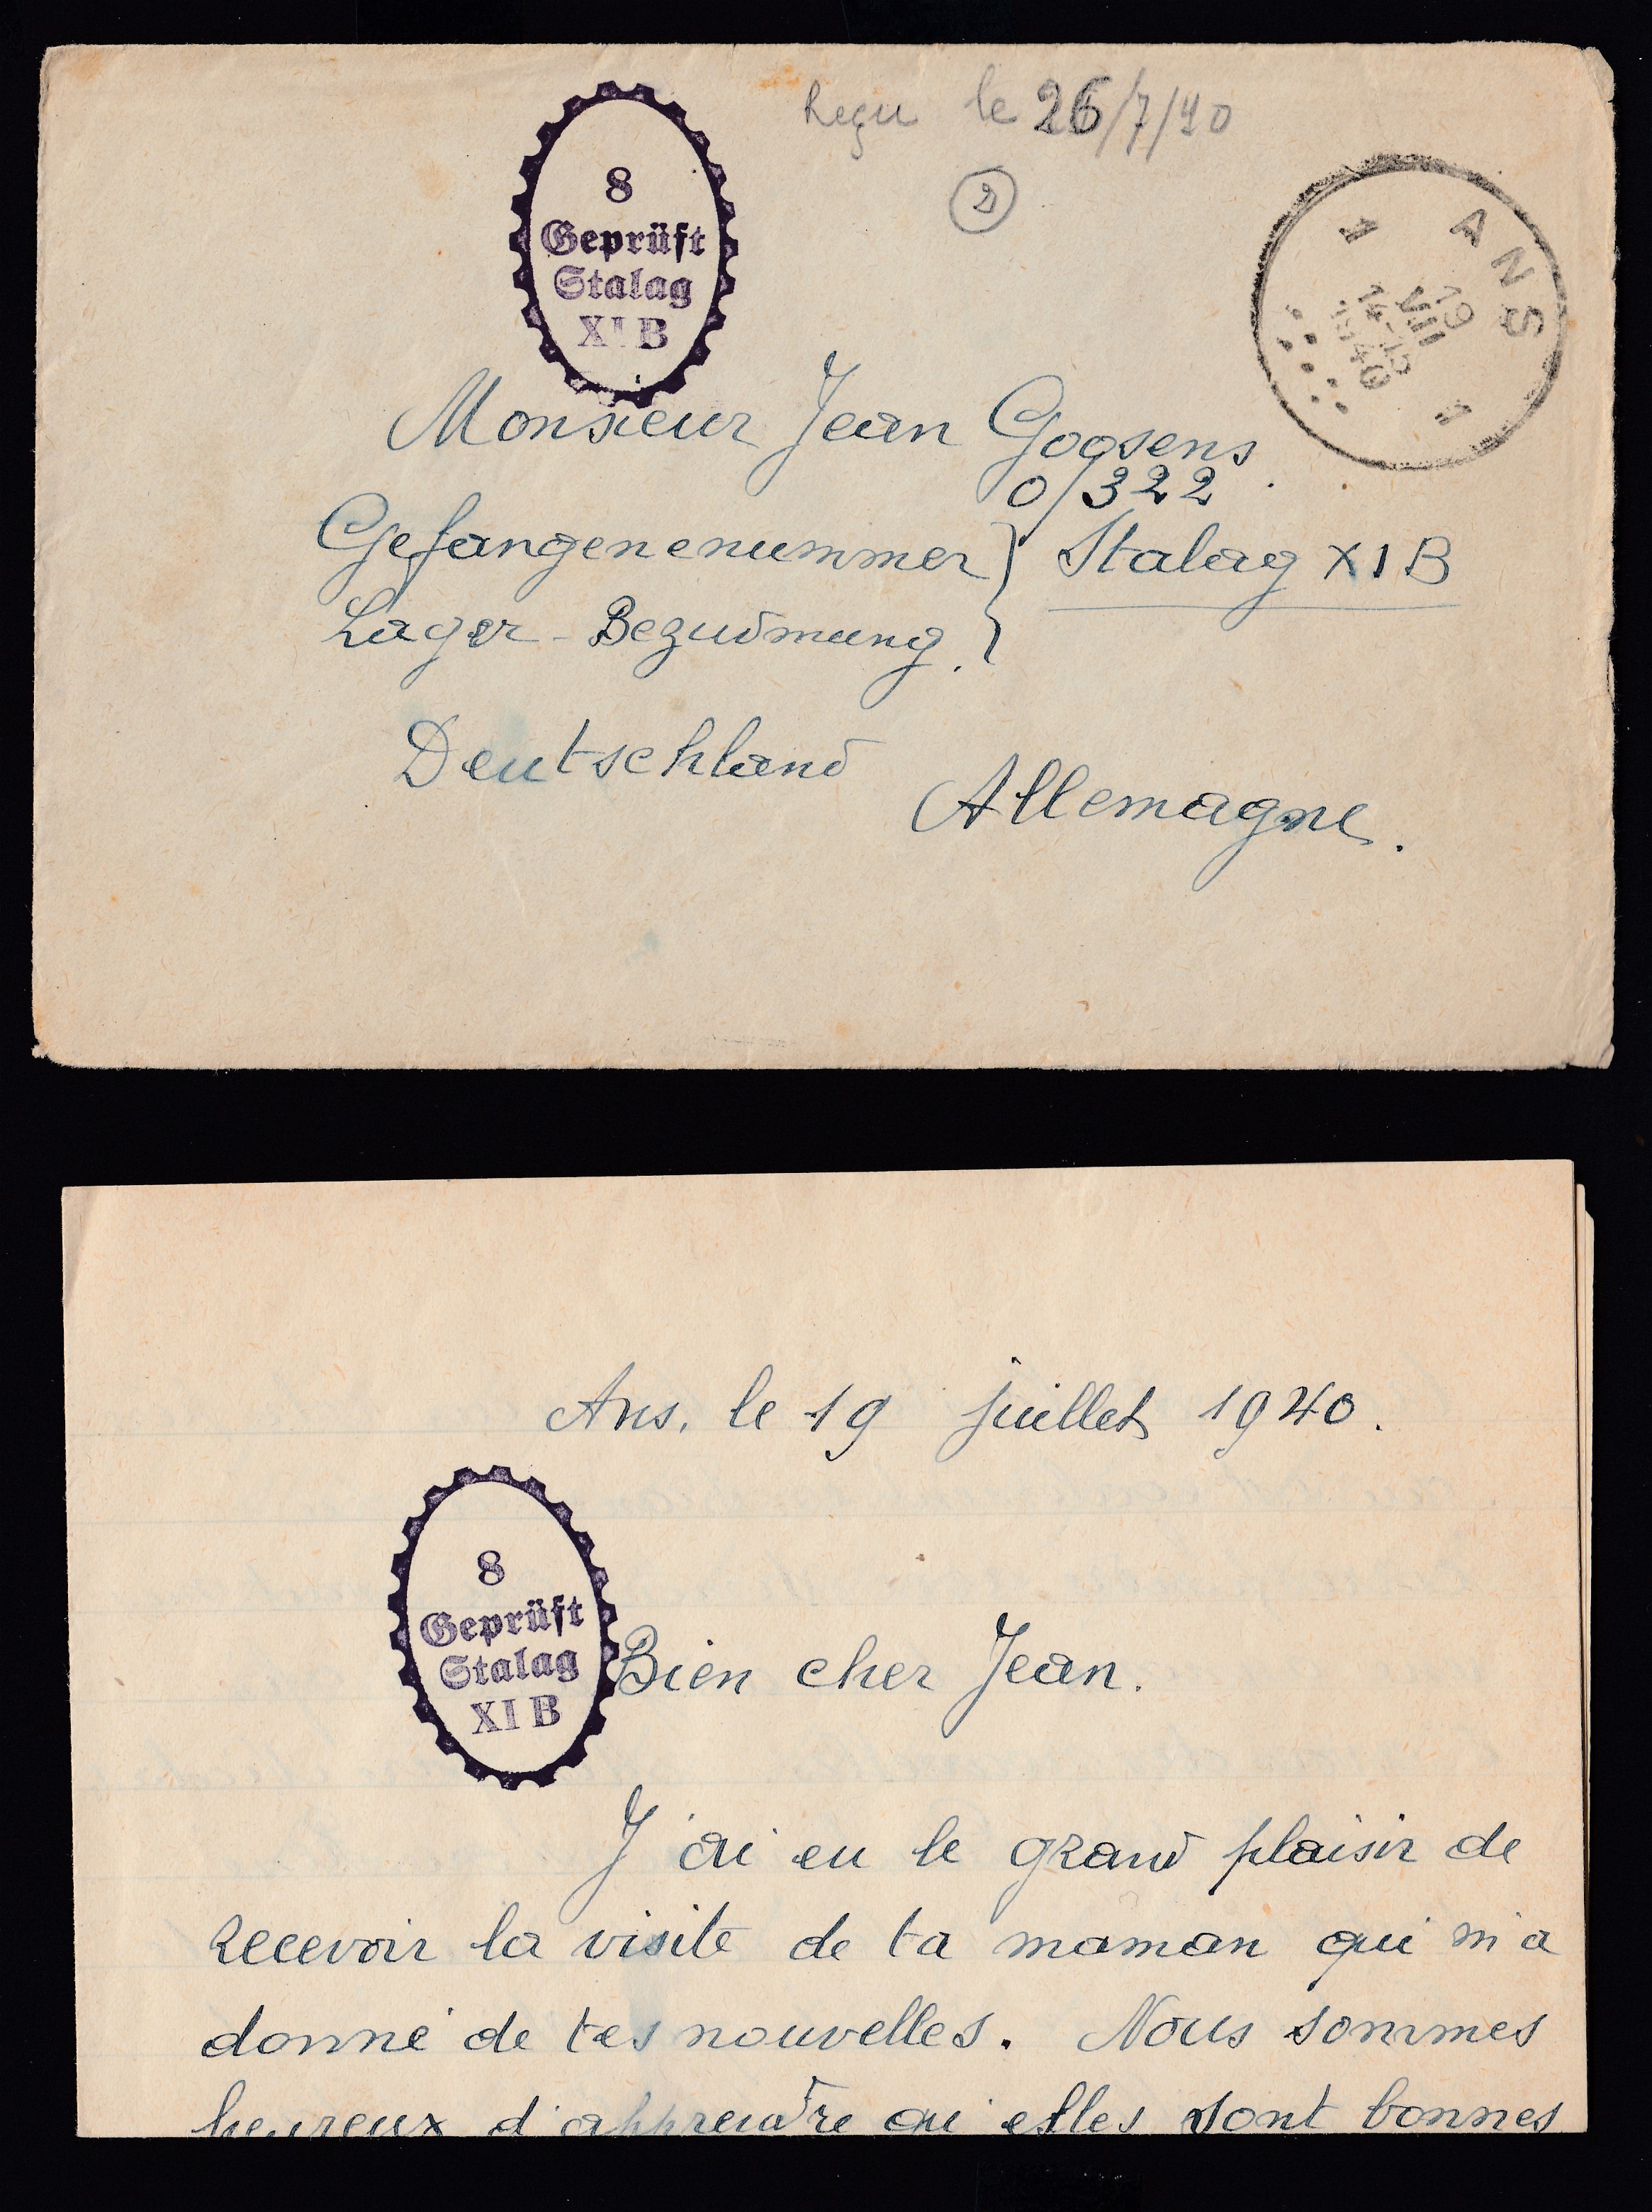 Reçu le 26/7/40
2
8
Geprüft
Stalag
XI B
ANS
19
VII
14-15
1940
1
1
Monsieur Jean Goosens
0/322
Gefangenenummer } Stalag XI B
Lager - Bezudmung. }
Deutschland
Allemagne.
Ans, le 19 juillet 1940.
8
Geprüft
Stalag
XI B
Bien cher Jean.
J'ai eu le grand plaisir de
recevoir la visite de ta maman qui m'a
donné de tes nouvelles. Nous sommes
heureux d'apprendre qu'elles sont bonnes